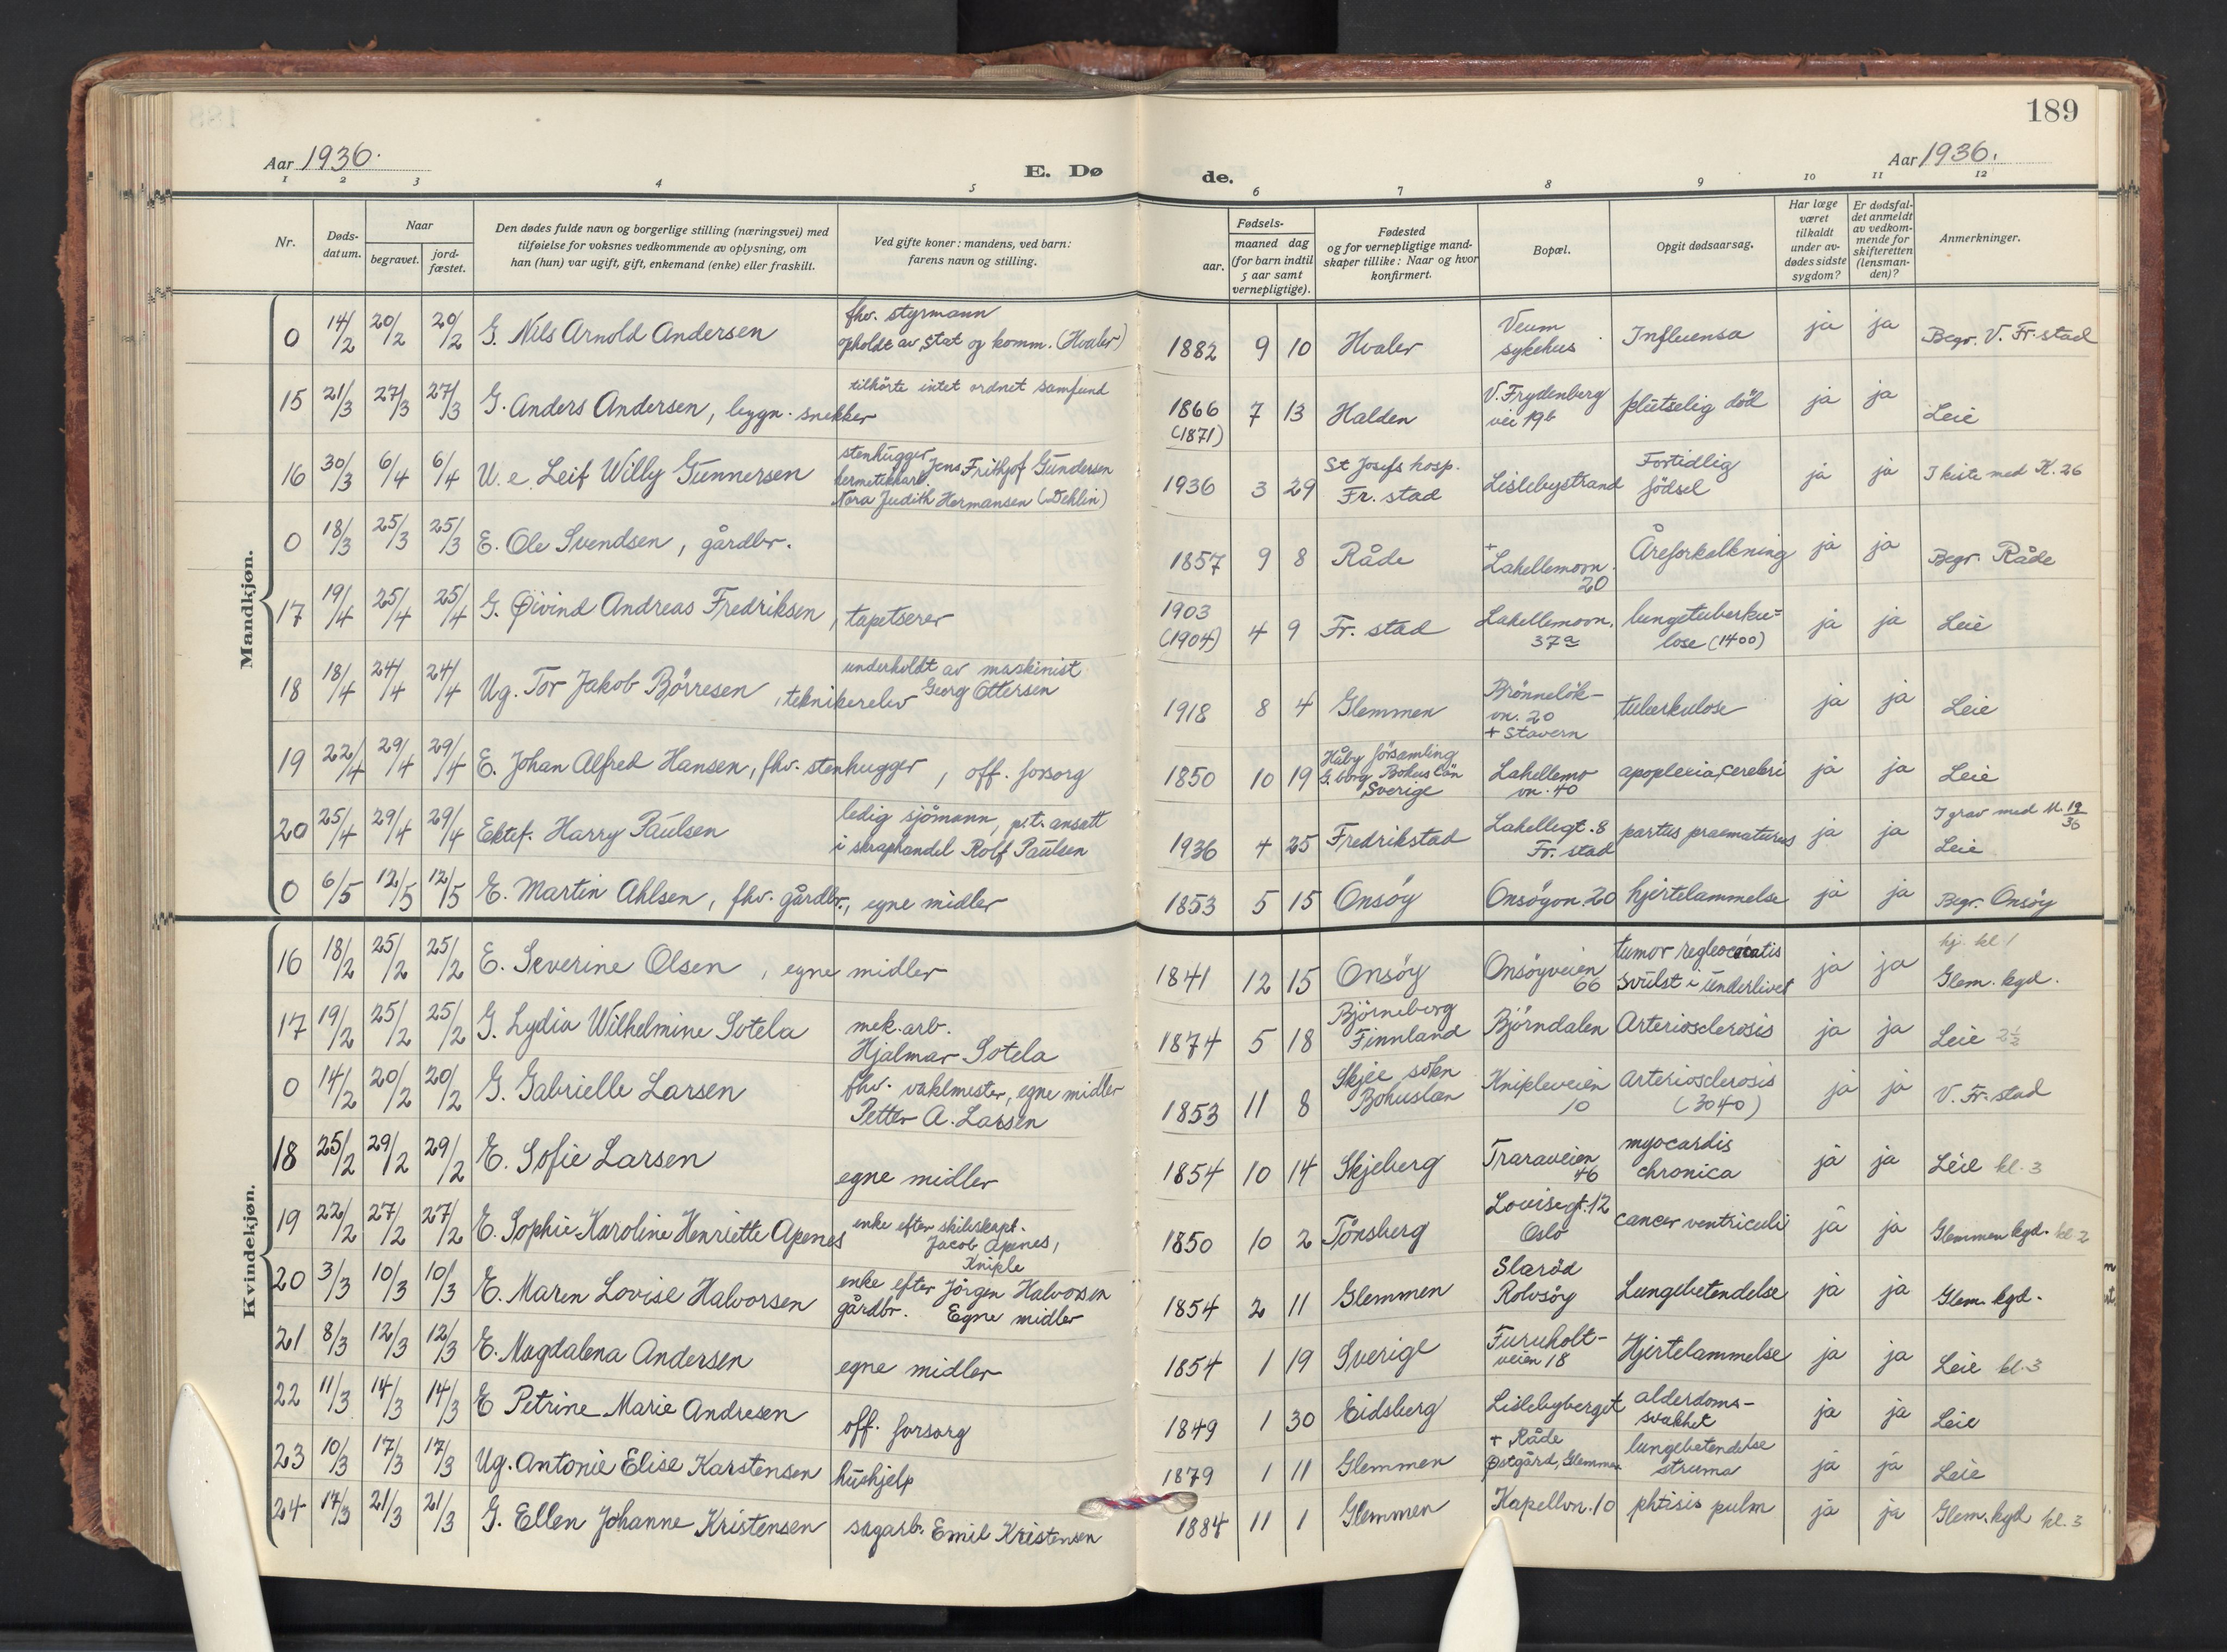 189
Aar 1936.
E. Dø
de.
Aar 1936.
1 2 3 4 5 6 7 8 9 10 11 12
Nr.
Døds-
datum.
Naar
begravet.
jord-
fæstet.
Den dødes fulde navn og borgerlige stilling (næringsvei) med
tilføielse for voksnes vedkommende av oplysning, om
han (hun) var ugift, gift, enkemand (enke) eller fraskilt.
Ved gifte koner: mandens, ved barn:
farens navn og stilling.
Fødsels-
aar.
maaned dag
(for barn indtil
5 aar samt
vernepligtige).
Fødested
og for vernepligtige mand-
skaper tillike: Naar og hvor
konfirmert.
Bopæl.
Opgit dødsaarsag.
Har læge
været
tilkaldt
under av-
dødes sidste
sygdom?
Er dødsfal-
det anmeldt
av vedkom-
mende for
skifteretten
(lensman-
den)?
Anmerkninger.
Mandkjøn.
0 14/2 20/2 20/2 G. Nils Arnold Andersen
fhv. styrmann
opholdt av stat og komm. (Hvaler)
1882 9 10 Hvaler
Veum
sykehus
Influensa ja ja Begr. V. Fr.stad
15 21/3 27/3 27/3 G. Anders Andersen, bygn. snekker
tilhörte intet ordnet samfund
1866
(1871)
7 13 Halden
V. Frydenberg
vei 19b
plutselig död ja ja Leie
16 30/3 6/4 6/4 U. e. Leif Willy Gunnersen
stenhugger Jens Frithjof Gundersen
hermetikkarb.
Nora Judith Hermansen (Dehlin)
1936 3 29
St Josefs hosp.
Fr. stad
Lislebystrand
Fortidlig
födsel
ja ja I kiste med K. 26
0 18/3 25/3 25/3 E. Ole Svendsen, gårdbr.
1857 9 8 Råde
+
Lahellemoen
20
Åreforkalkning ja ja Begr. Råde
17 19/4 25/4 25/4 G. Øivind Andreas Fredriksen, tapetserer
1903
(1904)
4 9 Fr. stad
Lahellemoen.
37a
lungetuberku=
lose (1400)
ja ja Leie
18 18/4 24/4 24/4 Ug. Tor Jakob Börresen, teknikerelev
underholdt av maskinist
Georg Ottersen
1918 8 4 Glemmen
Brönnelök-
vn. 20
+ Stavern
tuberkulose ja ja Leie
19 22/4 29/4 29/4 E. Johan Alfred Hansen, fhv. stenhugger, off. forsorg
1850 10 19
Håby församling
G.borg Bohus län
Sverige
Lahellemo
vn. 40
apoplexia cerebri ja ja Leie
20 25/4 29/4 29/4 Ektef. Harry Paulsen
ledig sjömann, p.t. ansatt
i skraphandel Rolf Paulsen
1936 4 25 Fredrikstad
Lahellegt. 8
Fr. stad
partus praematurus ja ja
I grav med M. 19/36
Leie
0 6/5 12/5 12/5 E. Martin Ahlsen, fhv. gårdbr., egne midler
1853 5 15 Onsöy Onsöyvn. 20 hjertelammelse ja ja Begr. Onsöy
Kvindekjøn.
16 18/2 25/2 25/2 E. Severine Olsen, egne midler
1841 12 15 Onsöy
Onsöyveien
66
tumor
svulst i underlivet
ja ja
kj. kl 1
Glem. kgd.
17 19/2 25/2 25/2 G. Lydia Wilhelmine Sotela
mek. arb.
Hjalmar Sotela
1874 5 18
Björneborg
Finnland
Björndalen Arteriosclerosis ja ja Leie 2½
0 14/2 20/2 20/2 G. Gabrielle Larsen
fhv. vaktmester, egne midler
Petter A. Larsen
1853 11 8
Skjee sokn
Bohuslän
Knipleveien
10
Arteriosclerosis
(3040)
ja ja V. Fr. stad
18 25/2 29/2 29/2 E. Sofie Larsen
egne midler
1854 10 14 Skjeberg
Traraveien
46
myocardis
chronica
ja ja Leie kl. 3
19 22/2 27/2 27/2 E. Sophie Karoline Henriette Apenes
enke efter skibskapt.
Jacob Apenes,
Kniple
1850 10 2 Tönsberg
Louisegt. 12
Oslo
cancer ventriculi ja ja Glemmen kgd. kl. 2
20 3/3 10/3 10/3 E. Maren Lovise Halvorsen
enke efter Jörgen Halvorsen
gårdbr. Egne midler
1854 2 11 Glemmen
Slaröd
Rolvsöy
Lungebetendelse ja ja Glem. kgd.
21 8/3 12/3 12/3 E. Magdalena Andersen
egne midler
1854 1 19 Sverige
Furuholt-
veien 18
Hjertelammelse ja ja Leie kl. 3
22 11/3 14/3 14/3 E Petrine Marie Andresen
off. forsorg
1849 1 30 Eidsberg Lislebyberget
alderdoms-
svakhet
ja ja Leie
23 10/3 17/3 17/3 Ug. Antonie Elise Karstensen
hushjelp
1879 1 11 Glemmen
+ Råde
Østgård, Glemmen
lungebetendelse
struma
ja ja Leie
24 17/3 21/3 21/3 G. Ellen Johanne Kristensen
sagarb. Emil Kristensen
1884 11 1 Glemmen Kapellvn. 10 phtisis pulm ja ja Glem. kgd kl. 3